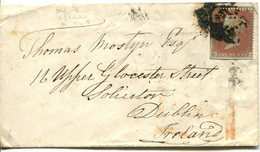 Thomas Mostyn Esqr
16 Upper Glocester Street
Solicitor
Dublin
Ireland